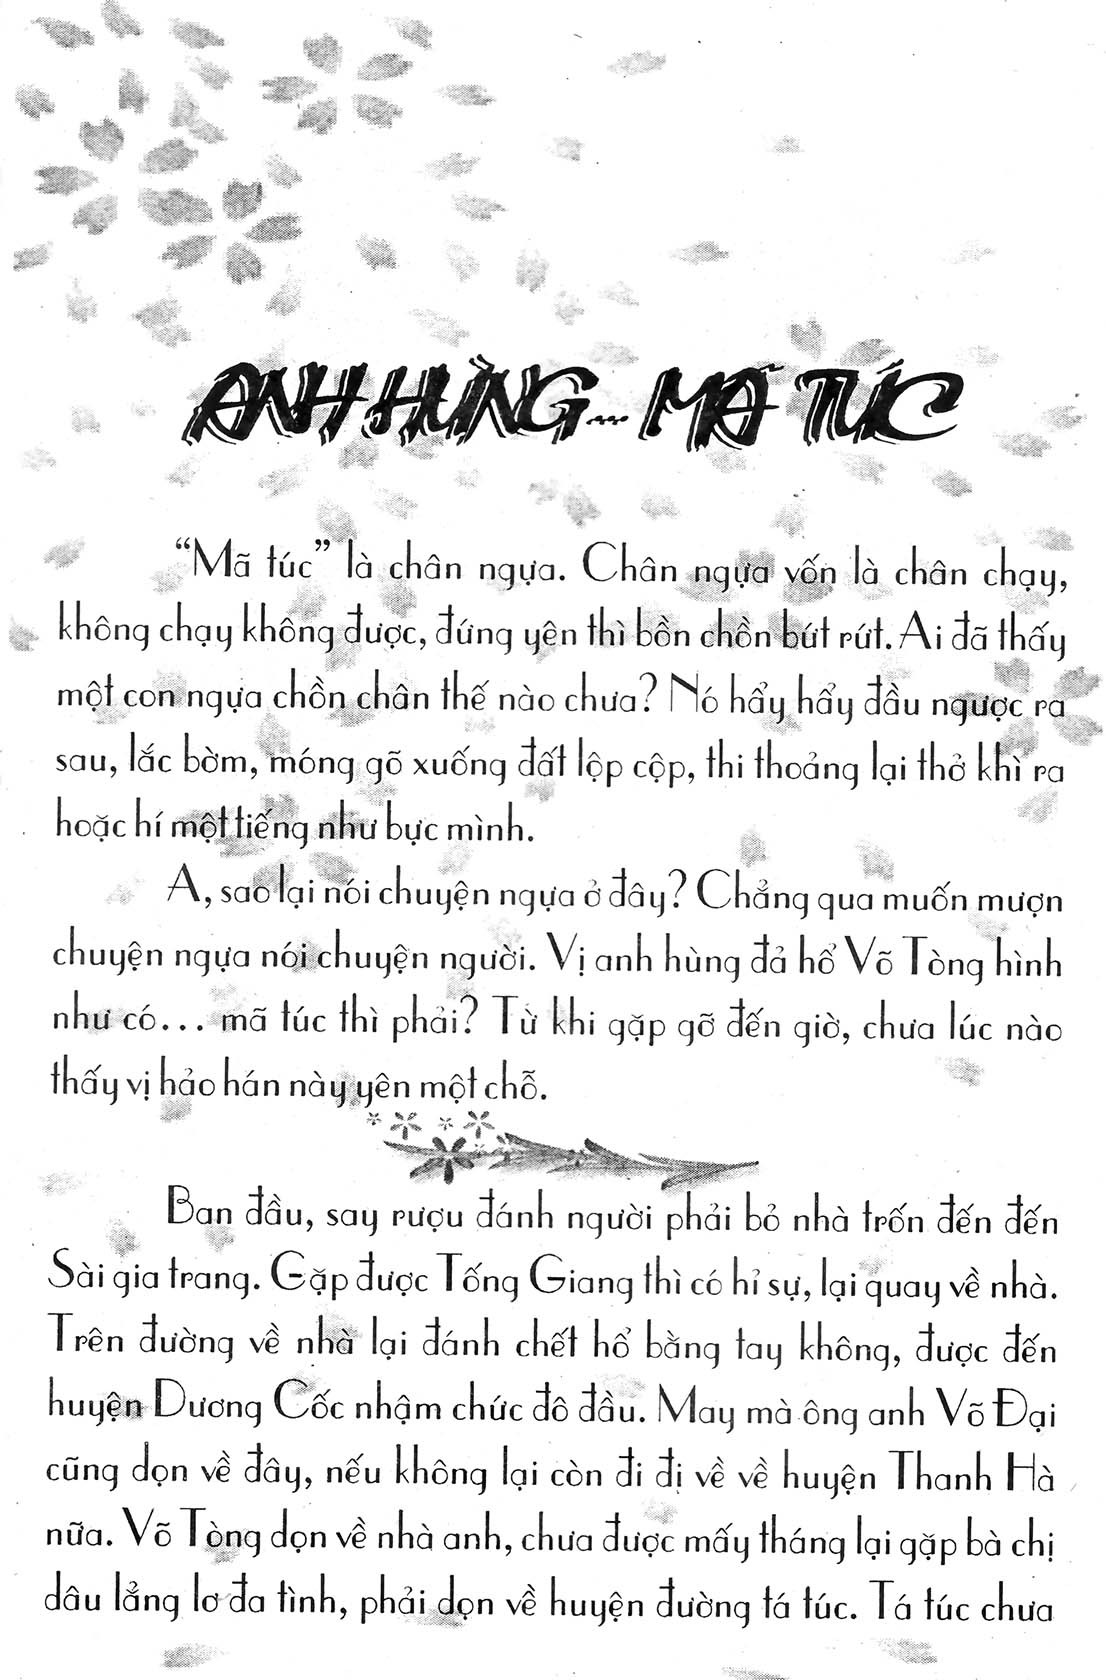 ANH HÙNG... MÃ TÚC
“Mã túc” là chân ngựa. Chân ngựa vốn là chân chạy,
không chạy không được, đứng yên thì bồn chồn bứt rứt. Ai đã thấy
một con ngựa chồn chân thế nào chưa? Nó hẩy hẩy đầu ngược ra
sau, lắc bờm, móng gõ xuống đất lộp cộp, thi thoảng lại thở khì ra
hoặc hí một tiếng như bực mình.
A, sao lại nói chuyện ngựa ở đây? Chẳng qua muốn mượn
chuyện ngựa nói chuyện người. Vị anh hùng đả hổ Võ Tòng hình
như có... mã túc thì phải? Từ khi gặp gỡ đến giờ, chưa lúc nào
thấy vị hảo hán này yên một chỗ.
Ban đầu, say rượu đánh người phải bỏ nhà trốn đến đến
Sài gia trang. Gặp được Tống Giang thì có hỉ sự, lại quay về nhà.
Trên đường về nhà lại đánh chết hổ bằng tay không, được đến
huyện Dương Cốc nhậm chức đô đầu. May mà ông anh Võ Đại
cũng dọn về đây, nếu không lại còn đi đị về về huyện Thanh Hà
nữa. Võ Tòng dọn về nhà anh, chưa được mấy tháng lại gặp bà chị
dâu lẳng lơ đa tình, phải dọn về huyện đường tá túc. Tá túc chưa